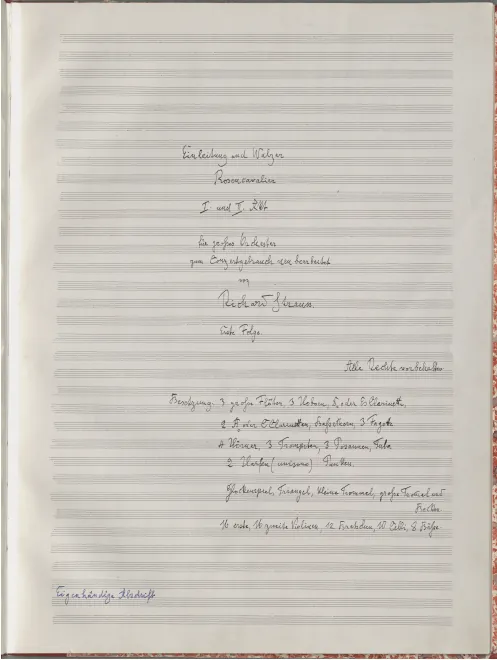 Einleitung und Walzer
Rosencavalier
I. und II. Akt
für großes Orchester
zum Conzertgebrauch neu bearbeitet
von
Richard Strauss.
Erste Folge.
Alle Rechte vorbehalten.
Besetzung: 3 große Flöten, 3 Hoboen, oder Clarinette,
2 oder Clarinetten, Bassethorn, 3 Fagotte
4 Hörner, 3 Trompeten, 3 Posaunen, Tuba
2 Harfen (unisono) Pauken.
Glockenspiel, Triangel, kleine Trommel, große Trommel und
Becken.
16 erste, 16 zweite Violinen 12 Bratschen, 10 Celli, 8 Bässe
Eigenhändige Abschrift